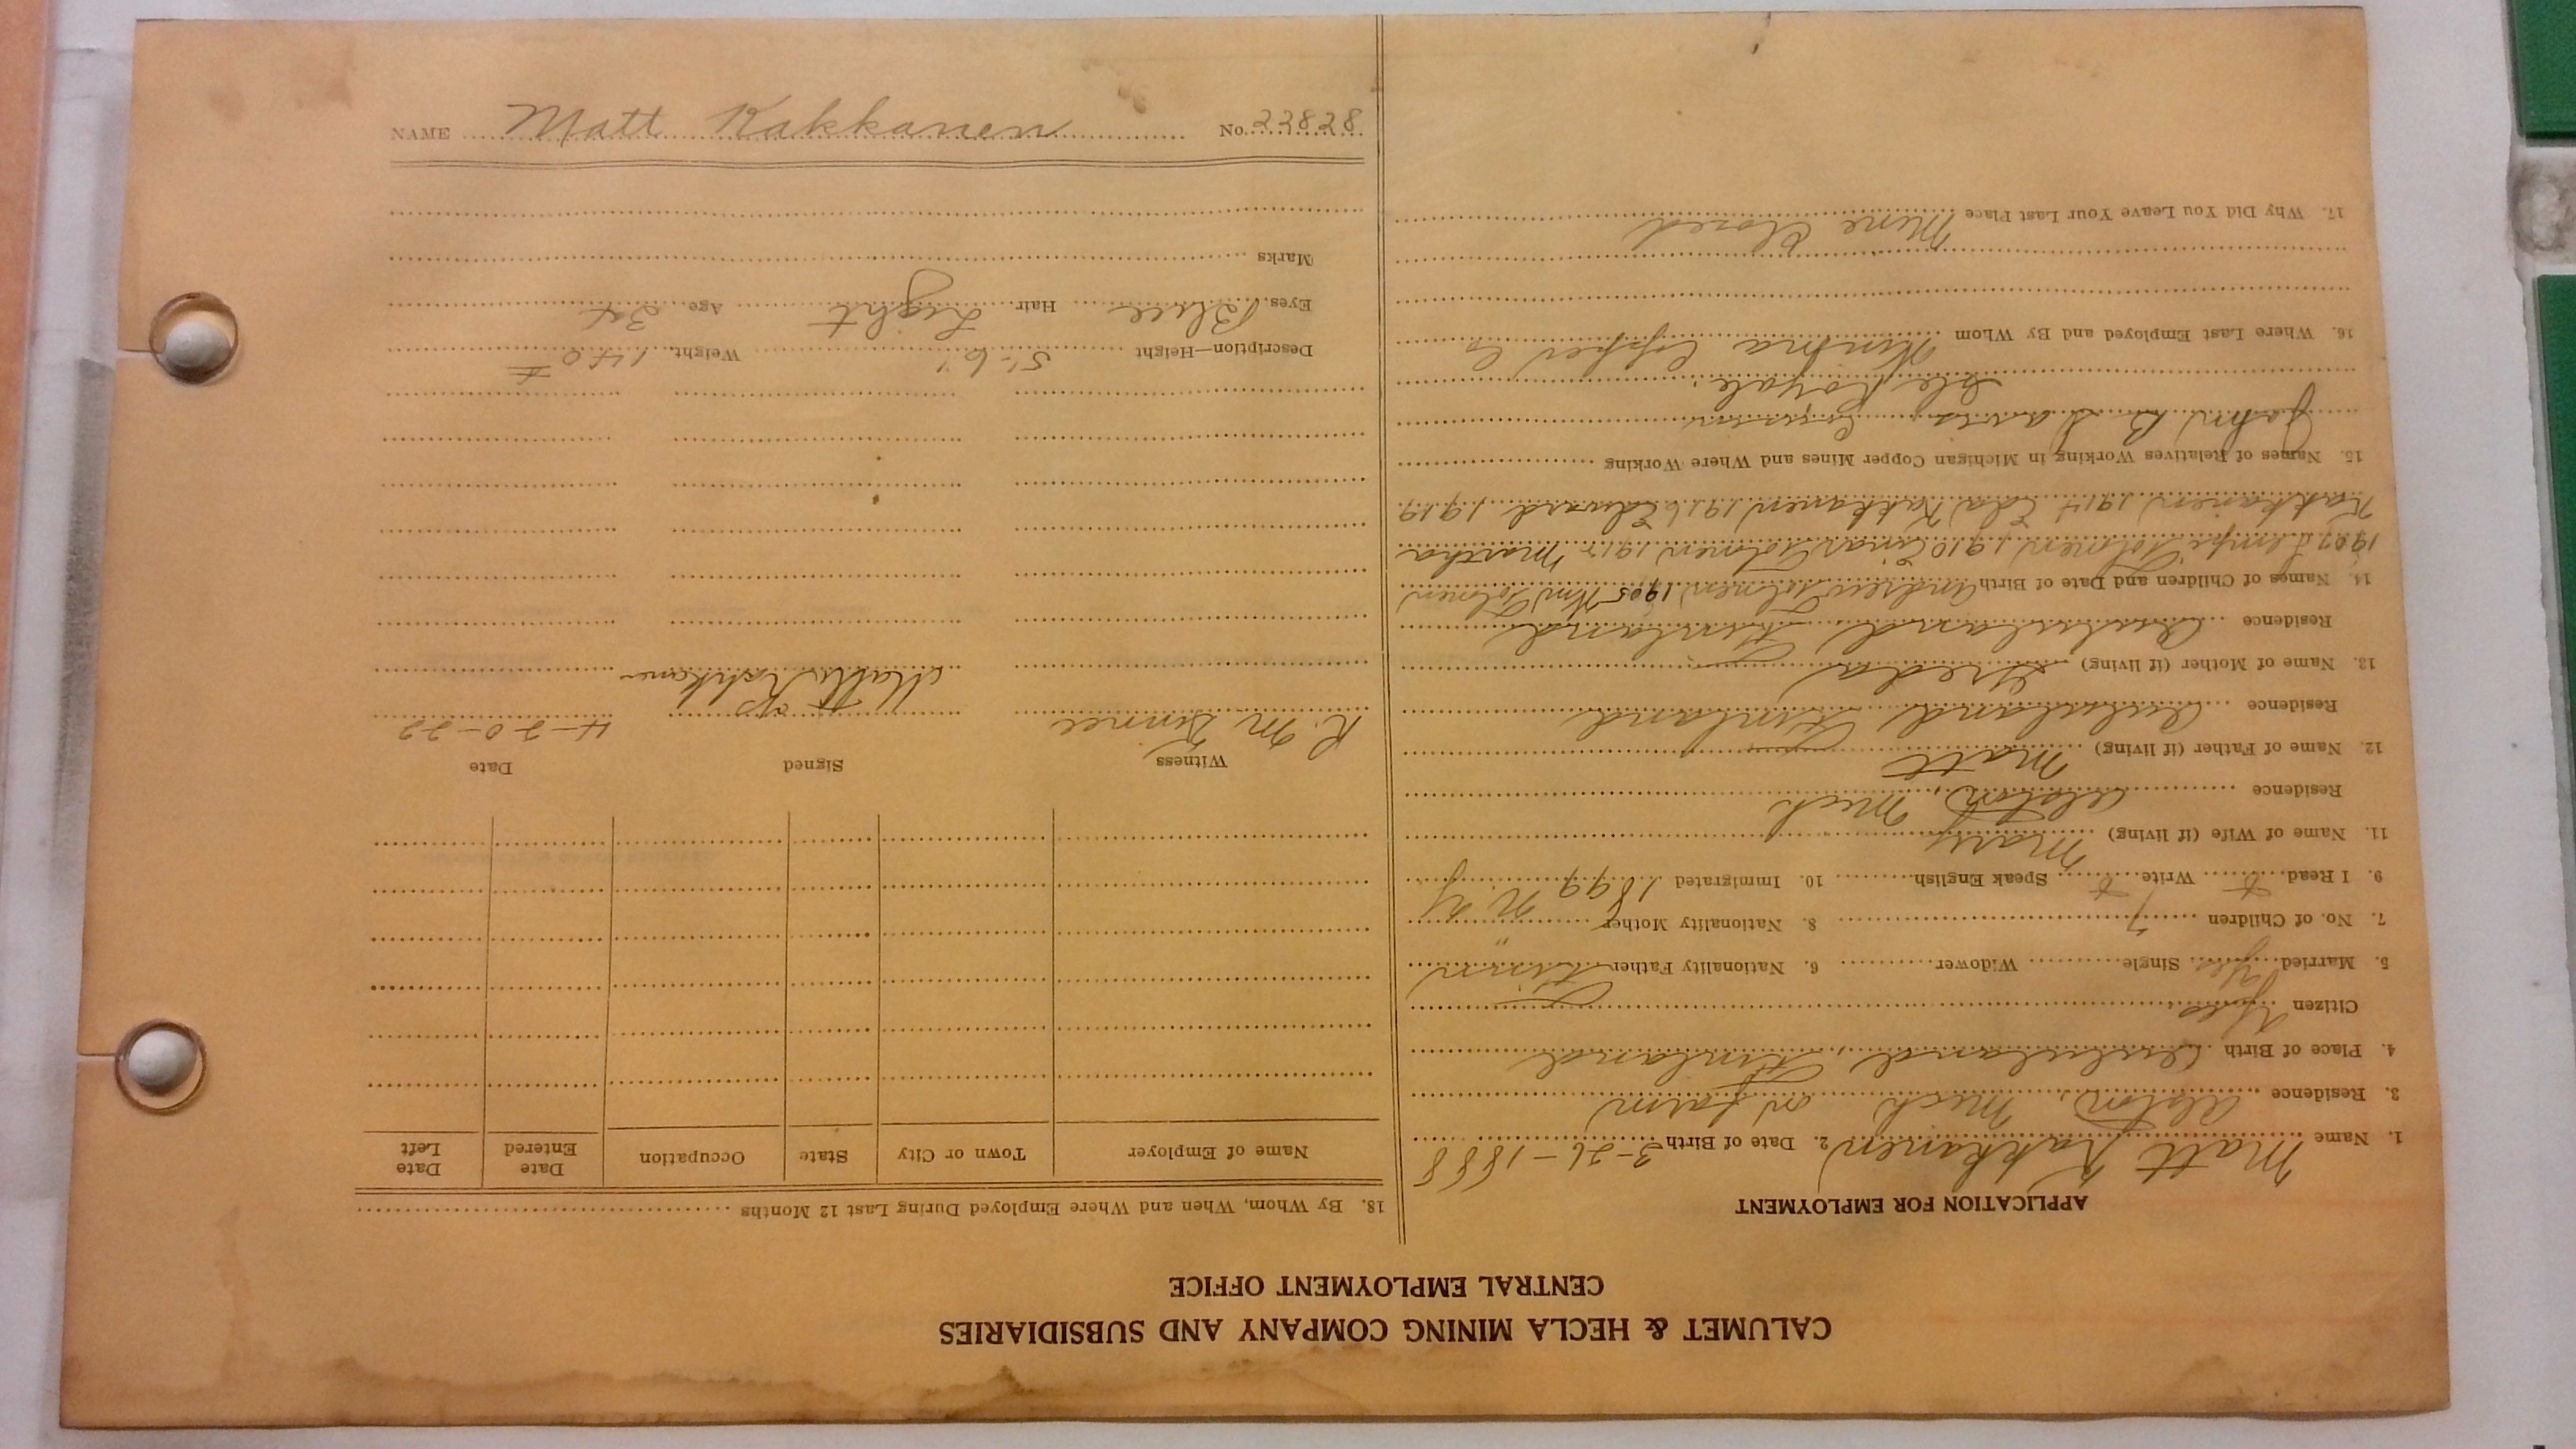 CALUMET & HECLA MINING COMPANY AND SUBSIDIARIES
CENTRAL EMPLOYMENT OFFICE
APPLICATION FOR EMPLOYMENT
1. Name Matt Kakkanen 2. Date of Birth 3-26-1888
3. Residence Alston, Mich on farm
4. Place of Birth Finland
Citizen Yes
5. Married Yes Single Widower 6. Nationality Father Finn
7. No. of Children 7 8. Nationality Mother "
9. I Read Write Speak English 10. Immigrated 1899 N.Y
11. Name of Wife (if living) Mary
Residence Alston, Mich
12. Name of Father (if living) Matt
Residence Finland
13. Name of Mother (if living) Greda
Residence Finland
14. Names of Children and Date of Birth Andrew 1905 Wm
1907 Lempi 1910 Einar Martha
Kakkanen 1914 Eda Kakkanen 1916 Edward 1919
15. Names of Relatives Working in Michigan Copper Mines and Where Working
John B. Davis, Cousin
Isle Royale.
16. Where Last Employed and By Whom Winona Copper Co
17. Why Did You Leave Your Last Place Mine Closed
18. By Whom, When and Where Employed During Last 12 Months
Name of Employer Town or City State Occupation Date Entered Date Left
Witness Signed Date
4-20-22
Description—Height 5'-6" Weight 140 #
Eyes Blue Hair Light Age 34
Marks
NAME Matt Kakkanen No. 22828